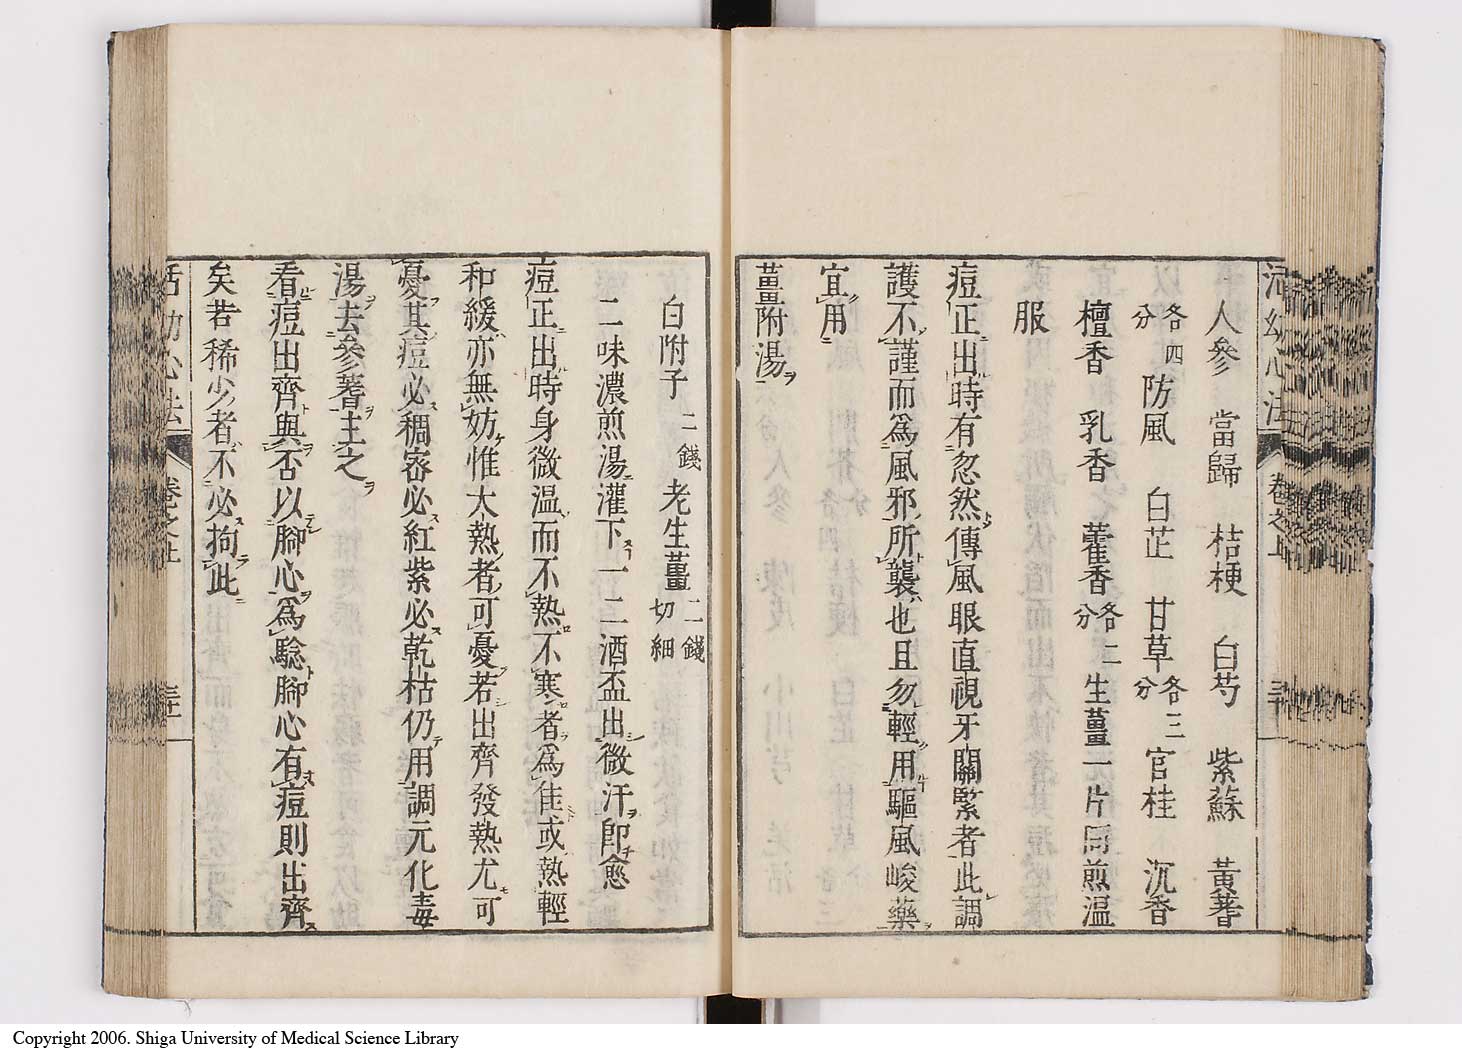 人參 當歸 桔梗 白芍 紫蘇 黃蓍
各四分 防風 白芷 甘草各三分 官桂 沉香
檀香 乳香 藿香各二分 生薑一片同煎溫
服
痘正出時有忽然傳風眼直視牙關緊者此調
護不謹而爲風邪所襲也且勿輕用驅風峻藥
宜用
薑附湯
白附子二錢 老生薑二錢切細
二味濃煎湯灌下一二酒盃出微汗卽愈
痘正出時身微溫而不熱不寒者爲佳或熱輕
和緩亦無妨惟大熱者可憂若出齊發熱尤可
憂其痘必稠密必紅紫必乾枯仍用調元化毒
湯去參蓍主之
看痘出齊與否以腳心爲驗腳心有痘則出齊
矣若稀少者不必拘此
活幼心法 卷之上
Copyright 2006. Shiga University of Medical Science Library